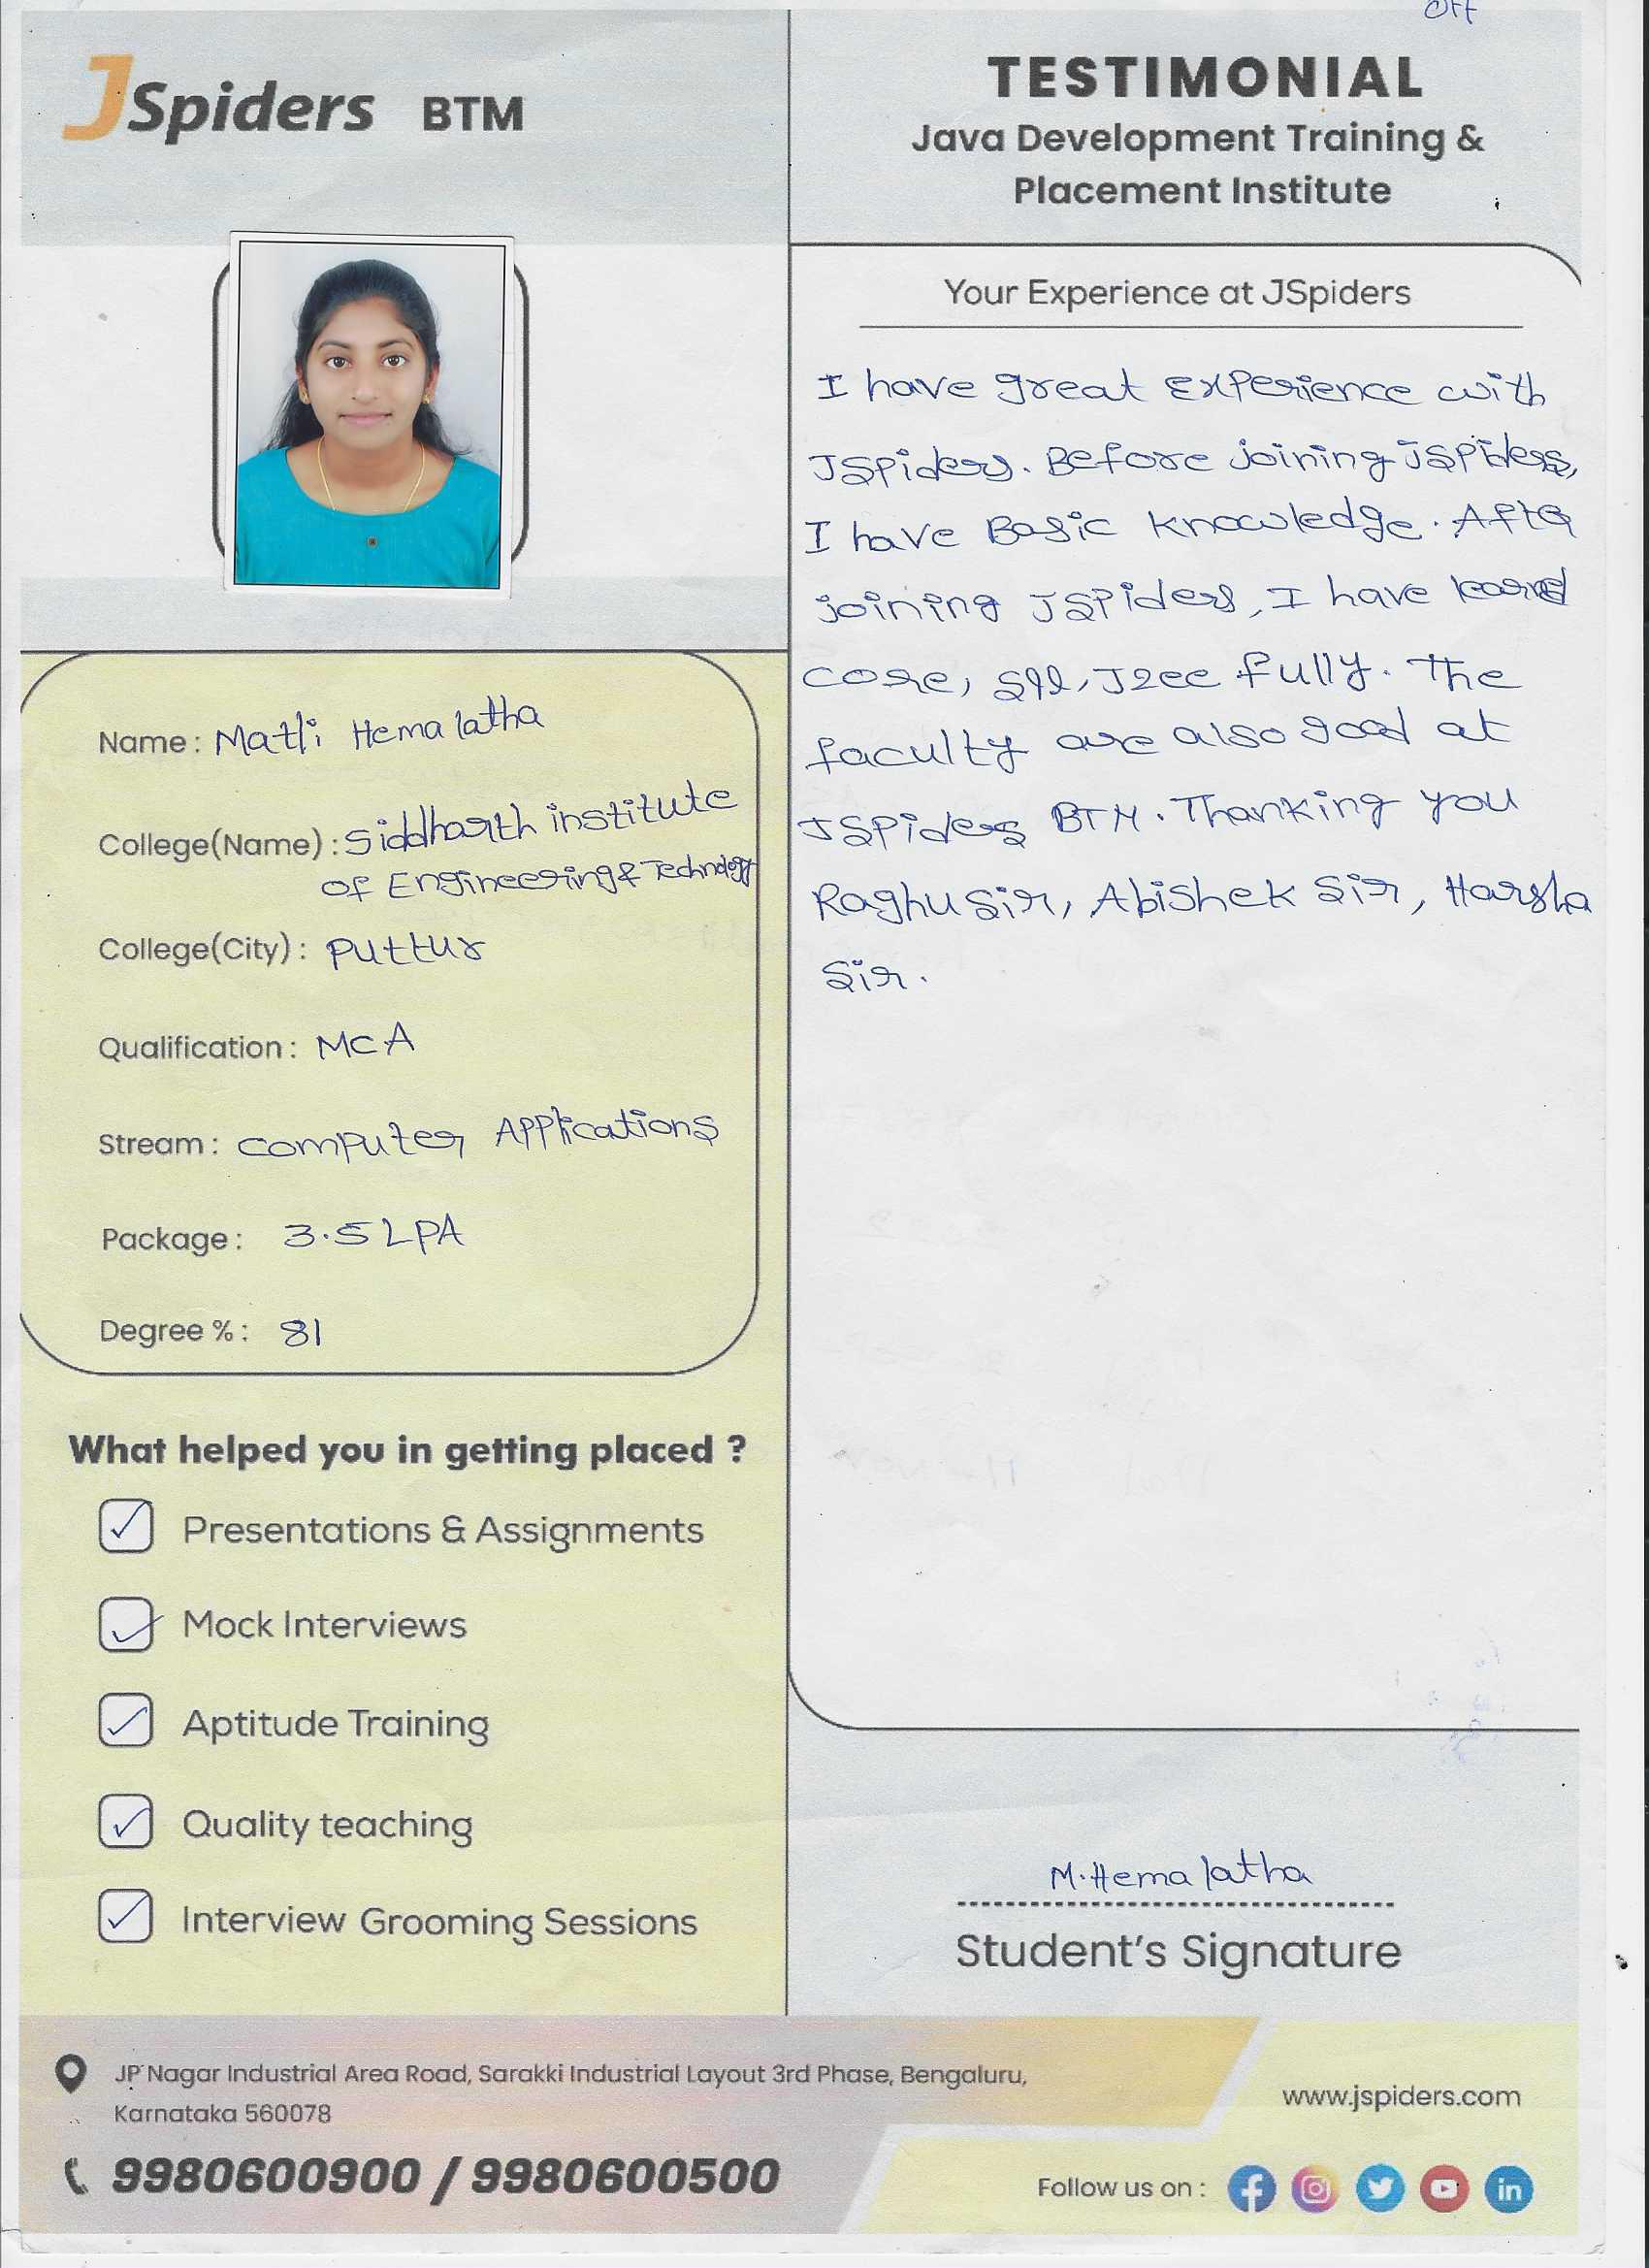 Off
JSpiders BTM
TESTIMONIAL
Java Development Training &
Placement Institute
Your Experience at JSpiders
I have great Experience with
JSpiders. Before joining JSpiders,
I have Basic knowledge. After
joining JSpiders, I have learned
core, Sql, J2ee fully. The
faculty are also good at
JSpiders BTM. Thanking you
Raghu sir, Abishek Sir, Harsha
Sir.
Name : Matli Hema latha
College(Name) : Siddharth institute
of Engineering & Technology
College(City) : Puttur
Qualification : MCA
Stream : Computer Applications
Package : 3.5 LPA
Degree % : 81
What helped you in getting placed ?
Presentations & Assignments
Mock Interviews
Aptitude Training
Quality teaching
Interview Grooming Sessions
M.Hema latha
Student's Signature
JP Nagar Industrial Area Road, Sarakki Industrial Layout 3rd Phase, Bengaluru,
Karnataka 560078
9980600900 / 9980600500
www.jspiders.com
Follow us on :